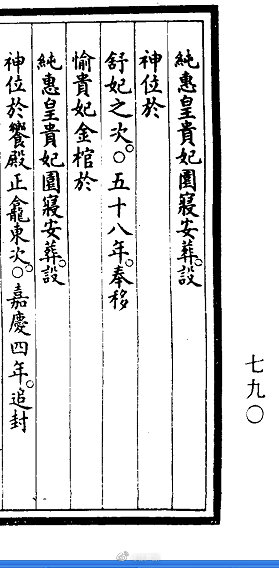 純惠皇貴妃園寢安葬。設
神位於
舒妃之次。○五十八年。奉移
愉貴妃金棺於
純惠皇貴妃園寢安葬。設
神位於饗殿正龕東次。○嘉慶四年。追封
七九〇